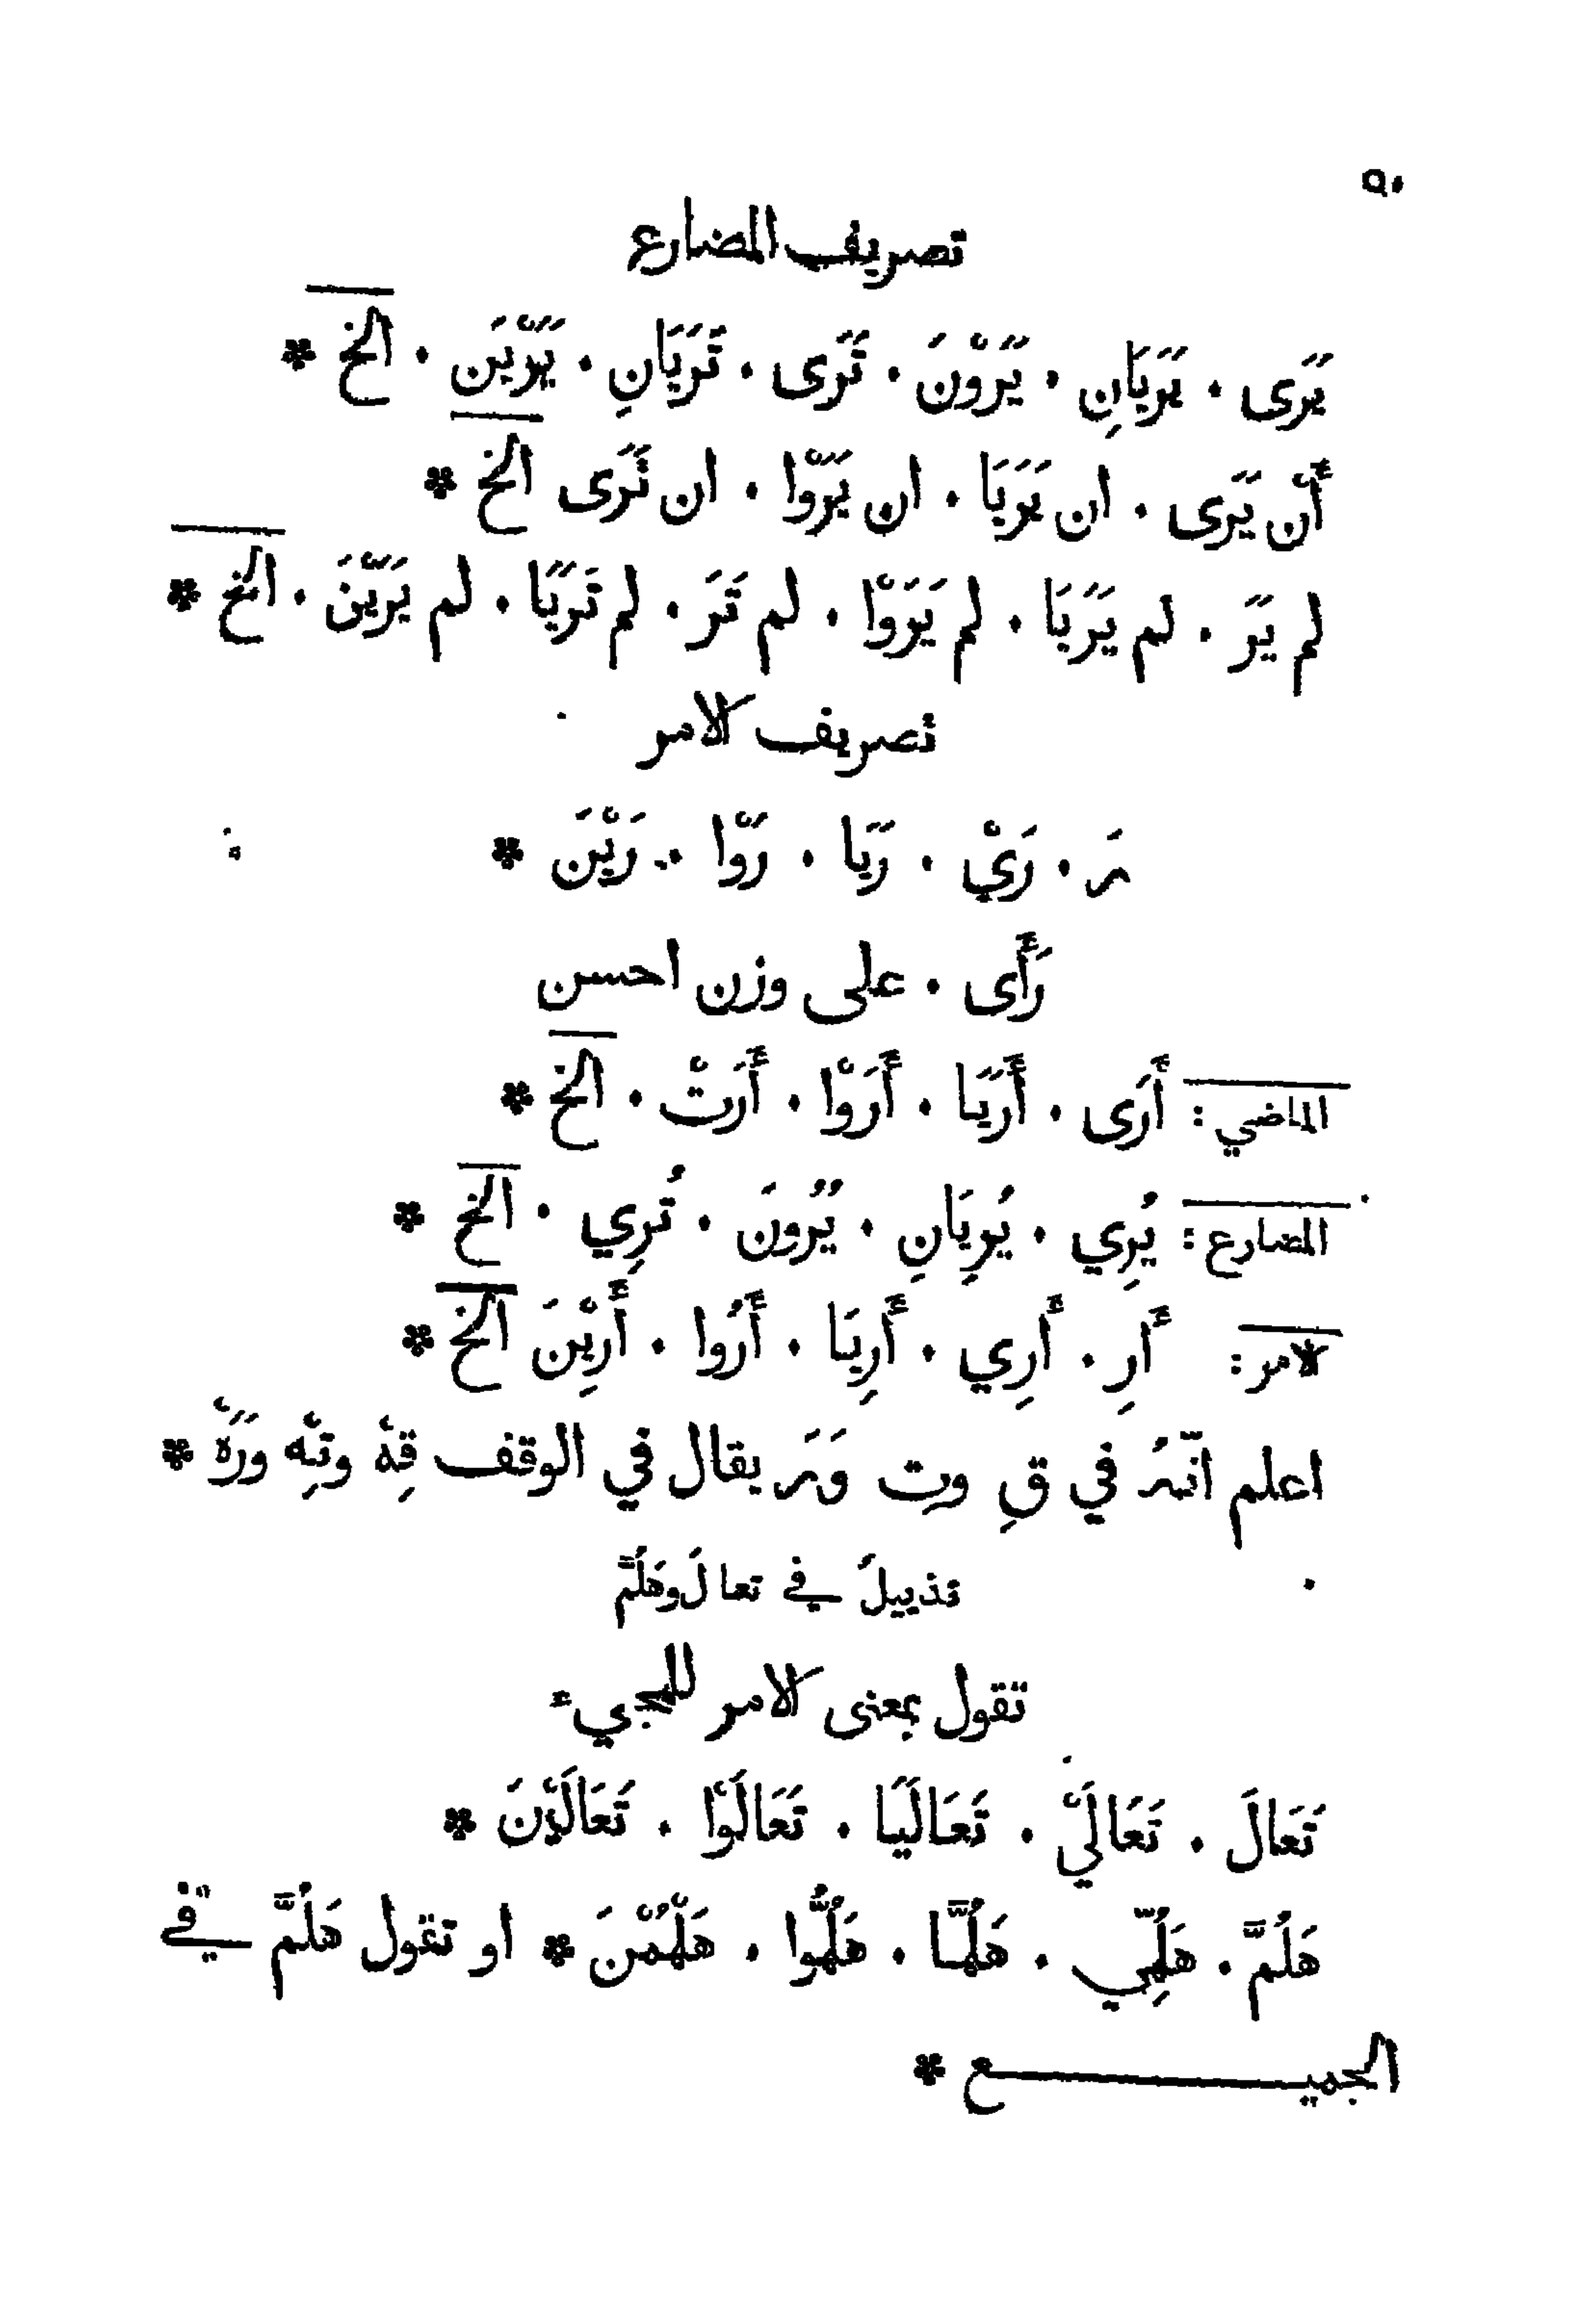 ٩٠
تصريف المضارع
يَرَى ٠ يَرَيَانِ ٠ يَرَوْنَ ٠ تَرَى ٠ تَرَيَانِ ٠ يَرَيْنَ ٠ الخ *
أَنْ يَرَى ٠ ان يَرَيَا ٠ ان يَرَوْا ٠ ان تَرَى الخ *
لم يَرَ ٠ لم يَرَيَا ٠ لم يَرَوْا ٠ لم تَرَ ٠ لم تَرَيَا ٠ لم يَرَيْنَ ٠ الخ *
تصريف الامر
رَ ٠ رَيْ ٠ رَيَا ٠ رَوْا ٠ رَيْنَ *
رَأَى ٠ على وزن احسن
الماضي : أَرَى ٠ أَرَيَا ٠ أَرَوْا ٠ أَرَتْ ٠ الخ *
المضارع : يُرِي ٠ يُرِيَانِ ٠ يُرُونَ ٠ تُرِي ٠ الخ *
الامر : أَرِ ٠ أَرِي ٠ أَرِيَا ٠ أَرُوا ٠ أَرِيْنَ الخ *
اعلم انّهُ في قِ وتِ وَرَ يقال في الوقف قِهْ وتِهْ ورَهْ *
تذييلُ في تعالَ وهَلُمَّ
تقول بمعنى الامر للمجيء
تَعَالَ ٠ تَعَالَيْ ٠ تَعَالَيَا ٠ تَعَالَوْا ٠ تَعَالَيْنَ *
هَلُمَّ ٠ هَلُمِّي ٠ هَلُمَّا ٠ هَلُمُّوا ٠ هَلْمُمْنَ * او تقول هَلُمَّ في
الجميع *